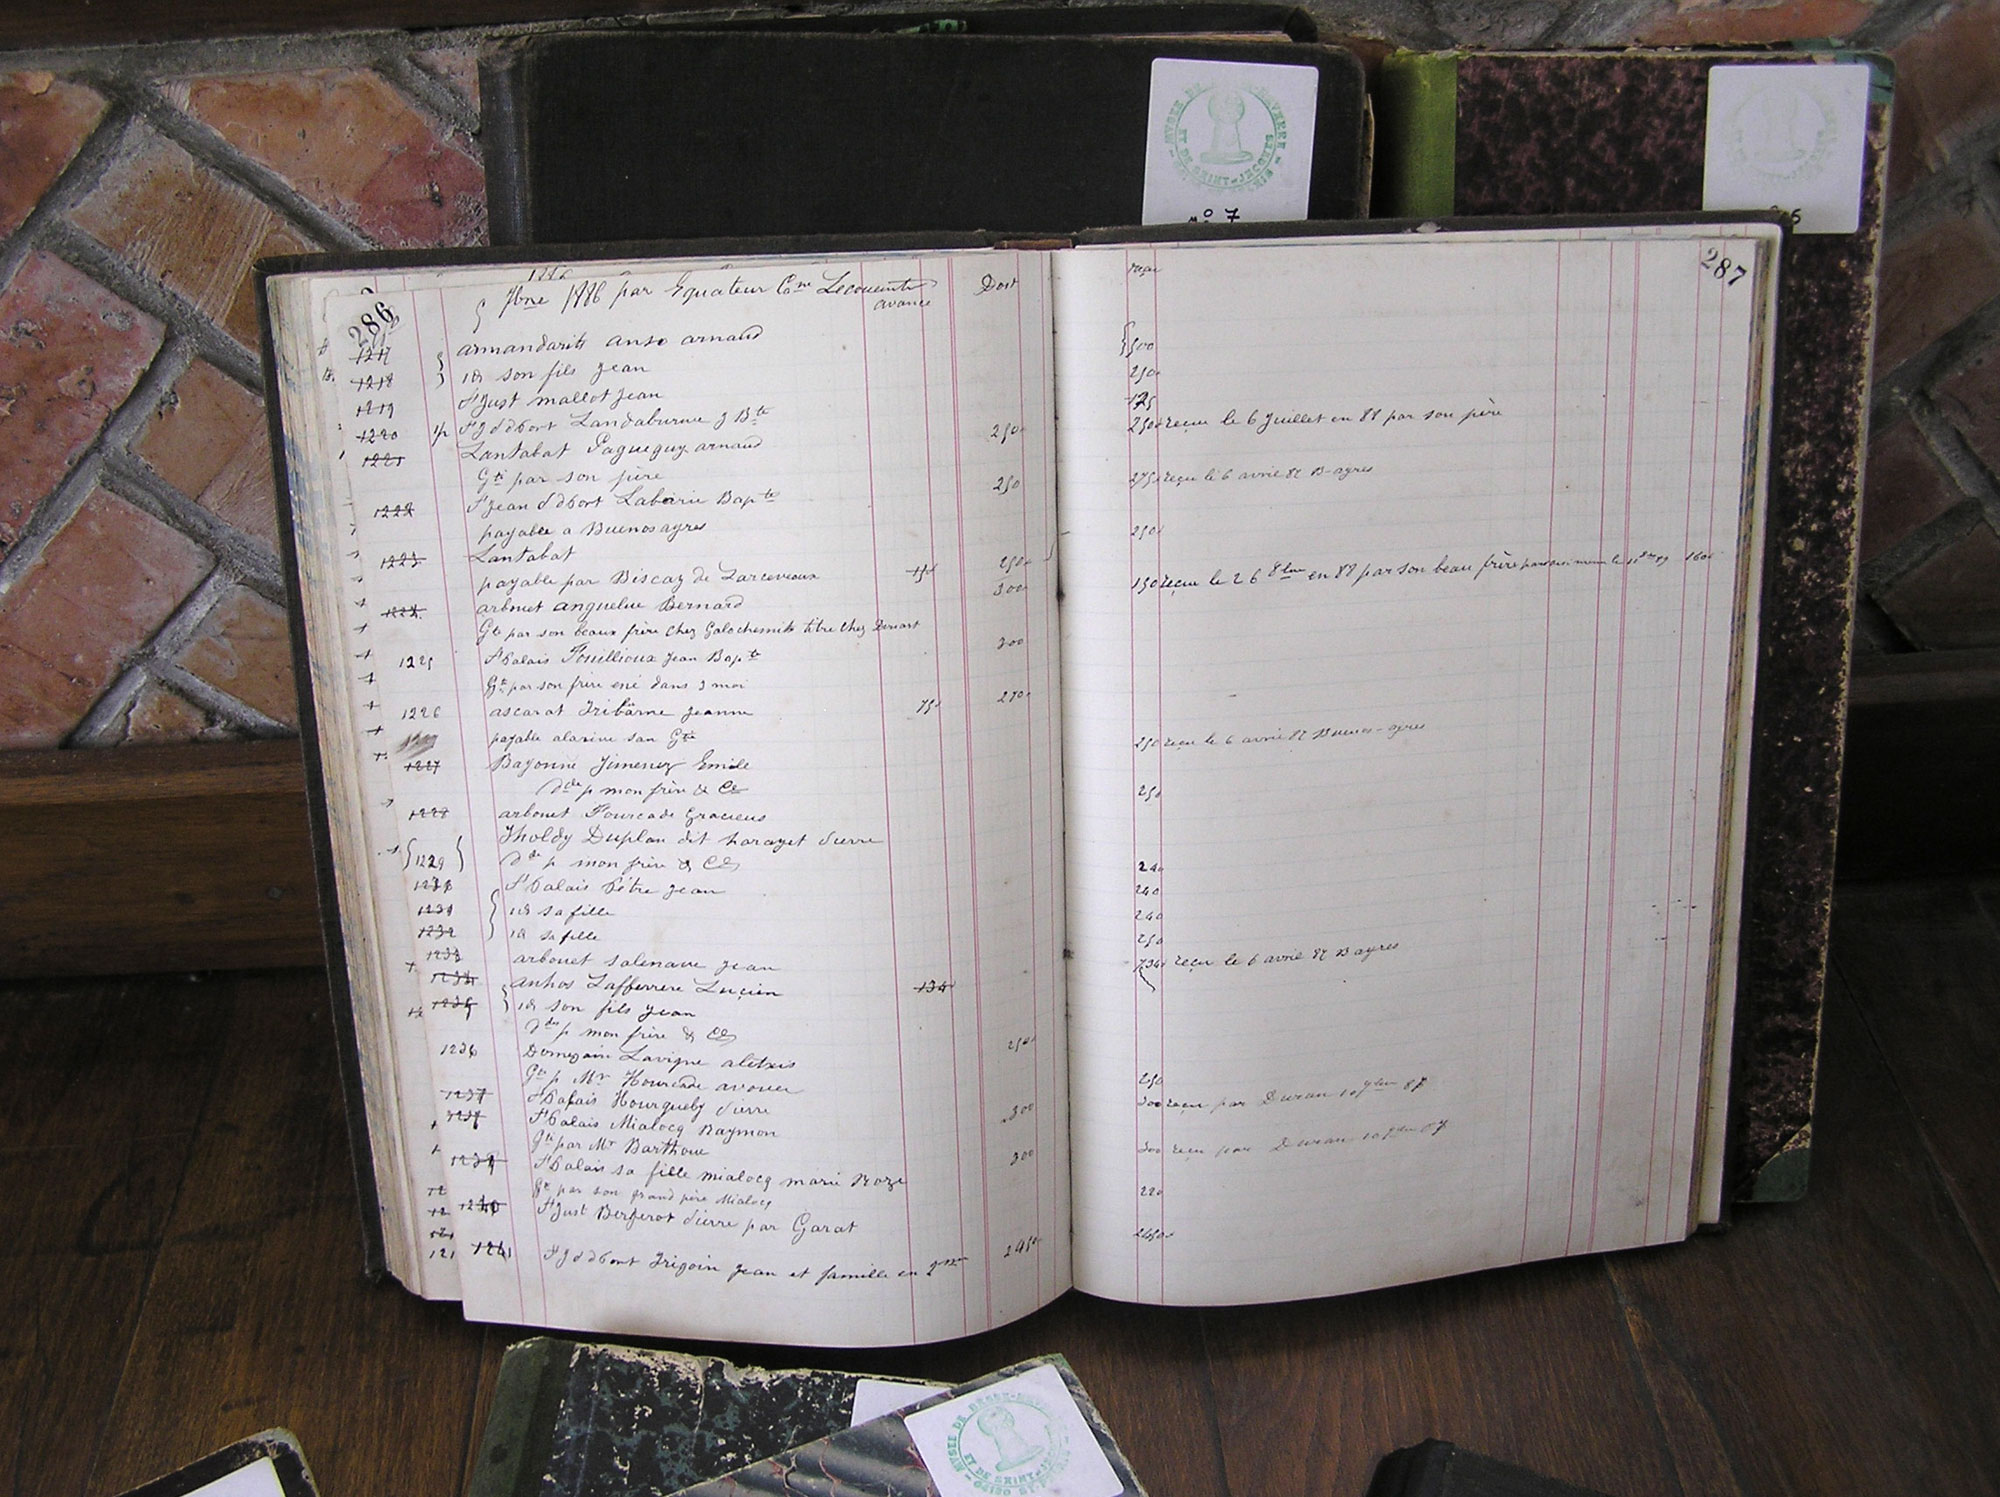 MUSEE DE BASSE-NAVARRE
ET DE SAINT-JACQUES
n° 7
286
5 7bre 1886 par Equateur Cne Lecointre
avance
Doit
1217 armandarits anso arnaud
1218 id son fils Jean
1219 St Just mallot Jean
1220 St J d d Port Landaburue J Bte
1221 Lantabat Pagueguy arnaud 250
Gti par son père
1222 St Jean d d Port Labèrie Bapte 250
payable a Buenos ayres
1223 Lantabat
payable par Biscay de Larceveaux 150 250
1224 arbouet anguelue Bernard 300
Gti par son beaux frère chez titre chez
1225 St Palais Fouillioux Jean Bapte 300
Gti par son frère dans 3 moi
1226 ascarat Iribarne Jeanne 75 270
payable san Gtie
1227 Bayonne Jimenez Emile
dde p mon frère & Cie
1228 arbouet Fourcade Gracieus
Iholdy Duplan dit harayet Pierre
1229 dde p mon frère & Cie
1230 St Palais Pètre Jean
1231 id sa fille
1232 id sa fille
1233 arbouet salenave Jean
1234 anhos Lafferrere Lucien 134
1235 id son fils Jean
ddes p mon frère & Cie
1236 Domezain Lavigne aletxis 250
Gti p Mr Hourcade avouer
1237 St Palais Hourqueby Pierre
1238 St Palais Mialocq Raymon 300
Gti par Mr Barthoue
1239 St Palais sa fille mialocq marie Roze 300
Gti par son grand père Mialocq
1240 St Just Bergerot Pierre par Garat
1241 St J d d Port Irigoin Jean et famille en 2450
287
500
250
175
250 reçu le 6 Juillet en 88 par son père
275 reçu le 6 avril 87 B-ayres
250
150 reçu le 26 8bre en 88 par son beau frère 160
250 reçu le 6 avril 87 Buenos-ayres
250
240
240
240
250
734 reçu le 6 avril 87 B ayres
250
300 reçu par Duran 10 9bre 87
300 reçu par Duran 10 9bre 87
220
2450
MUSEE DE BASSE-NAVARRE
ET DE SAINT-JACQUES